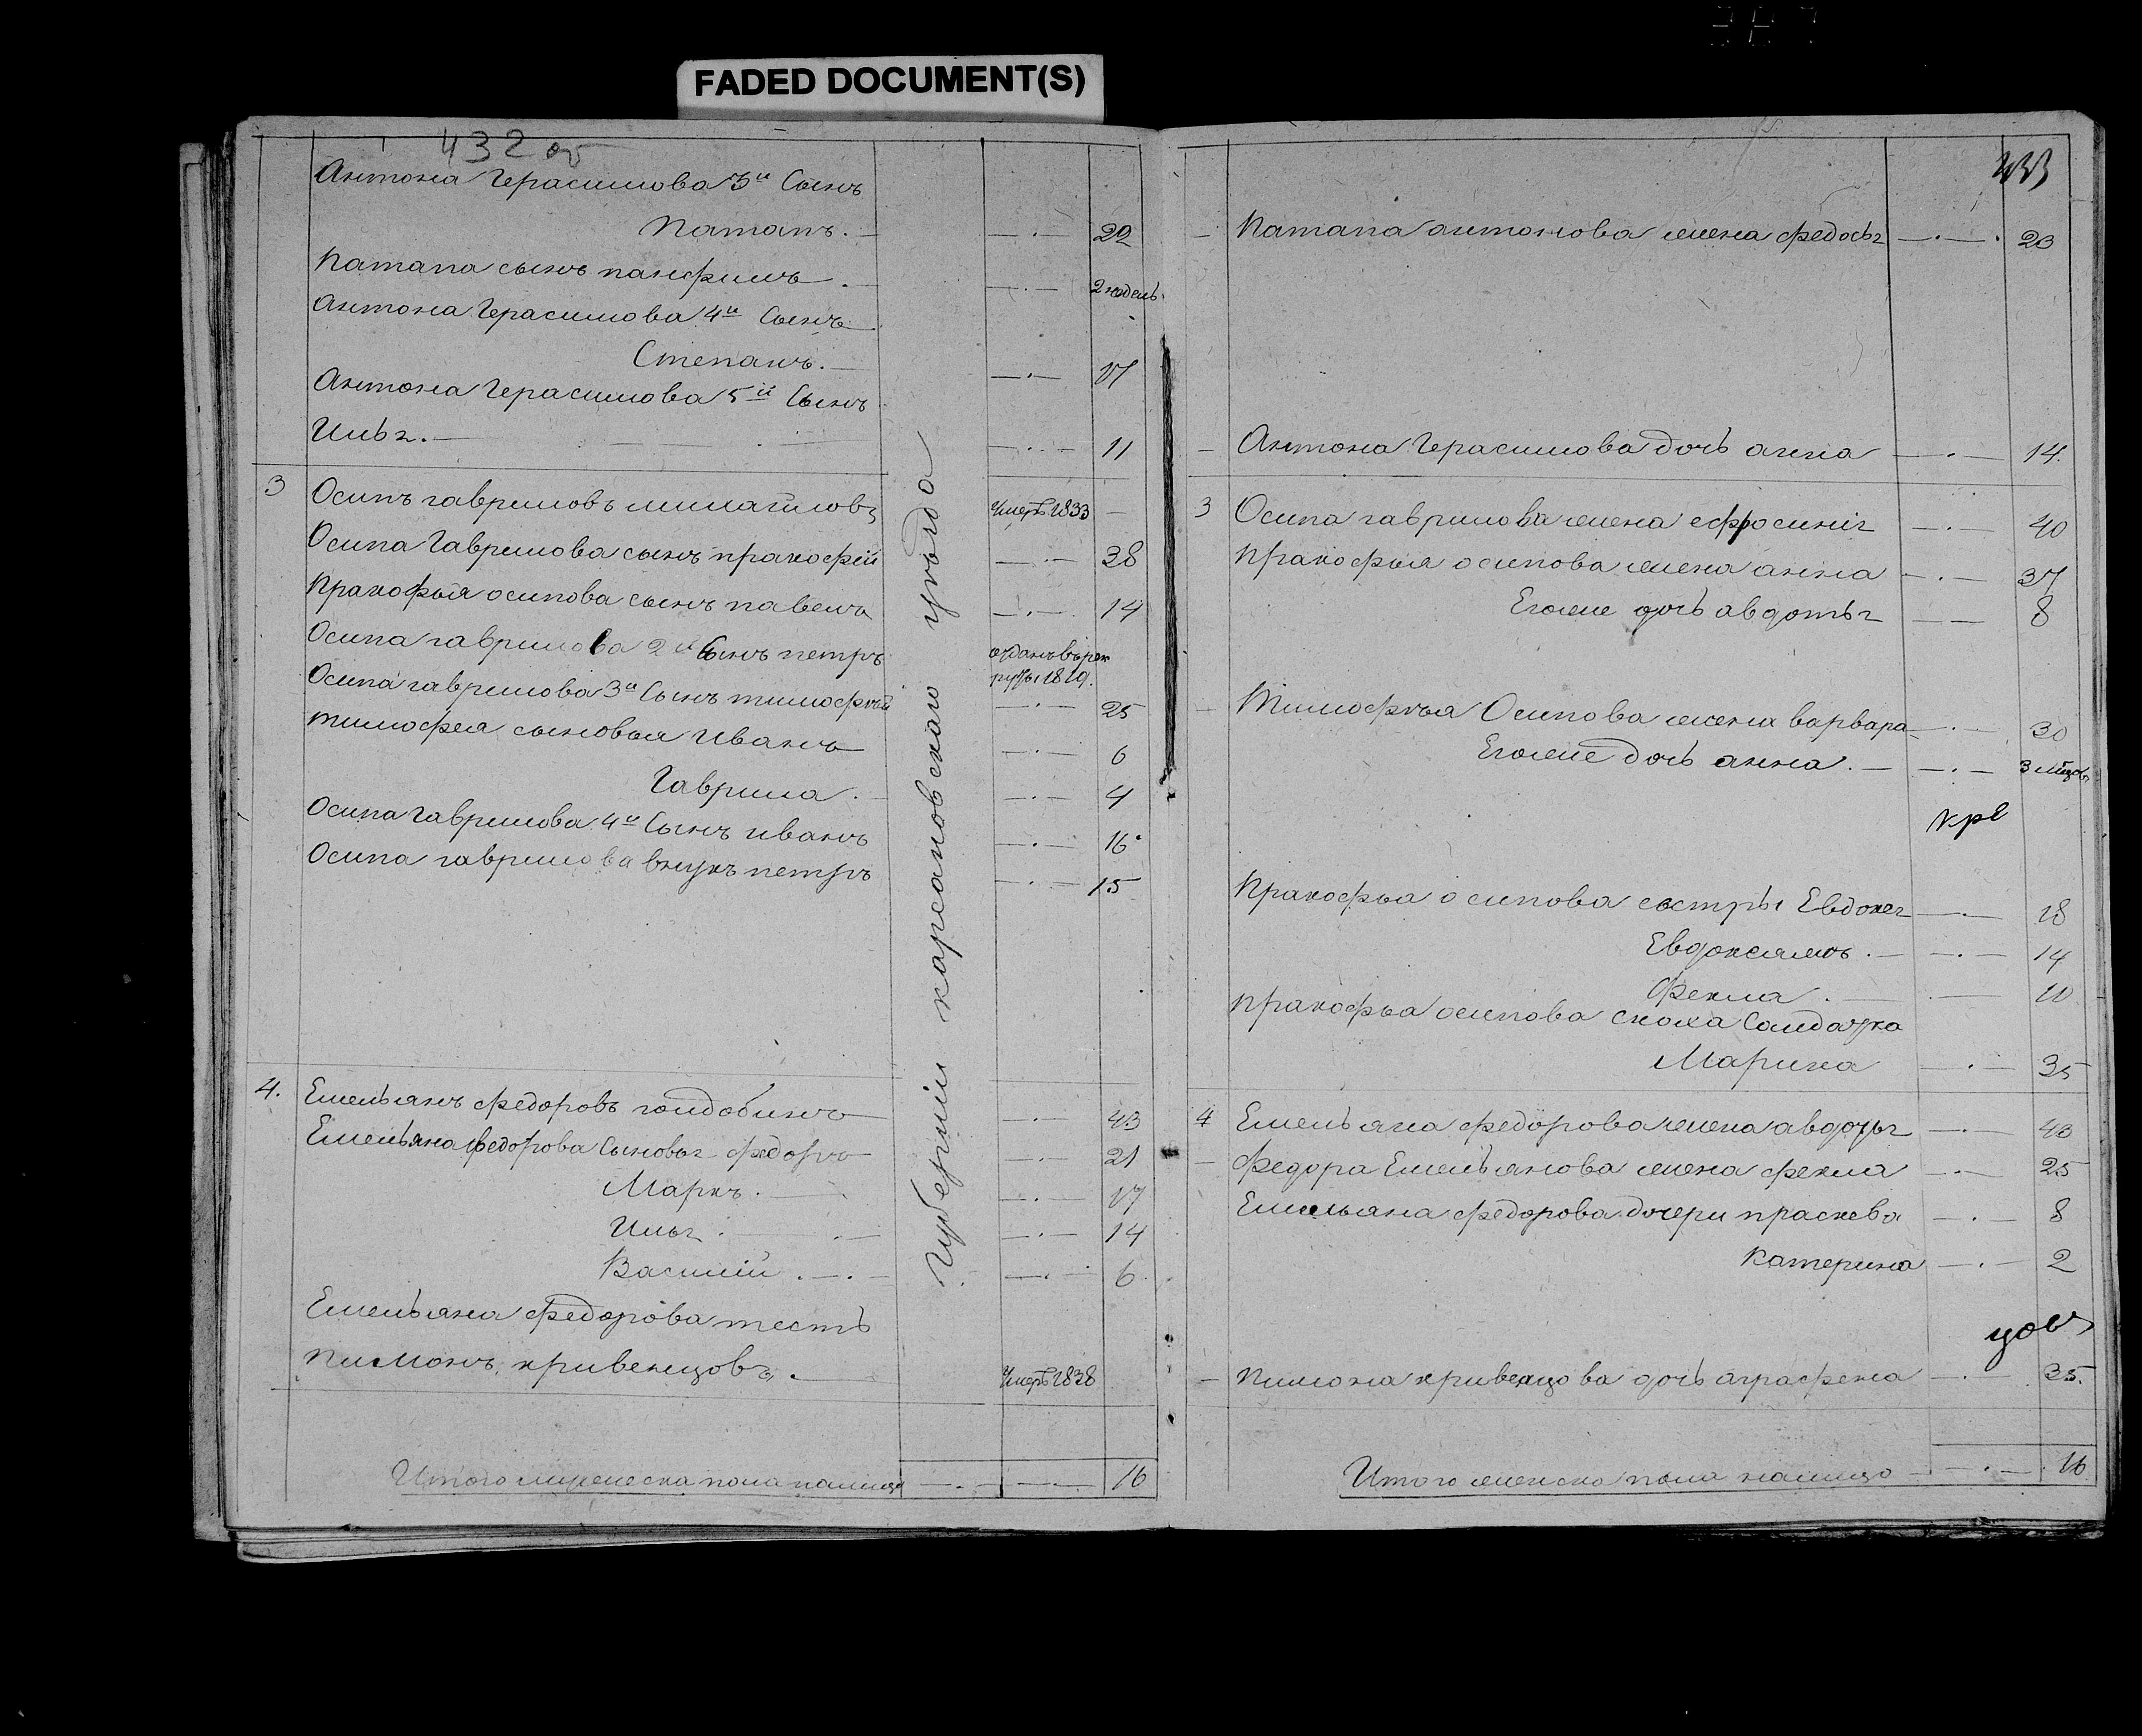 FADED DOCUMENT(S)
432 об
Антона Герасимова 3й Сынъ
Патапъ. — · — 20
Патапа сынъ панфилъ. — · — 2 недель
Антона Герасимова 4й Сынъ
Степанъ. — · — 17
Антона Герасимова 5й Сынъ
Илья. — · — 11
3 Осипъ гавриловъ михайловъ умеръ 1833 —
Осипа Гаврилова сынъ пракофей — · — 38
Пракофья осипова сынъ павелъ — · — 14
Осипа гаврилова 2й Сынъ петръ отданъ в рек
руты 1819.
Осипа гаврилова 3й Сынъ тимофей — · — 25
тимофея сыновья иванъ — · — 6
Гаврила. — · — 4
Осипа Гаврилова 4й Сынъ иванъ — · — 16
Осипа гаврилова внукъ петръ — · — 15
4. Емельянъ федоровъ голдобинъ — · — 43
Емельяна федорова Сыновья федоръ — · — 21
Маркъ. — · — 17
Илья. — · — 14
Василий. — · — 6
Емельяна федорова тесть
пимонъ кривенцовъ. умеръ 1838
Итого мужеска пола налицо — · — 16
Губернии карсановскаго уезда
433
— Патапа антонова жена федосья — · — 20
— Антона Герасимова дочь анна — · — 14.
3 Осипа гаврилова жена ефросиния — · — 40
Пракофья осипова жена анна — · — 37
Егоже дочь авдотья — — 8
— Тимофея Осипова жена варвара — · — 30
Егоже дочь анна. — · — 3 мцовъ
кре
Пракофья осипова сестры Евдокея — · — 18
14
Фекла. — 10
пракофья осипова сноха Солдатка
Марина — · — 35
4 Емельяна федорова жена авдотья — · — 40
— Федора Емельянова жена фекла — · — 25
Емельяна федорова дочери праскева — · — 8
Катерина — · — 2
цовъ
— Пимона кривенцова дочь аграфена — · — 35.
Итого женска пола налицо — · — 16